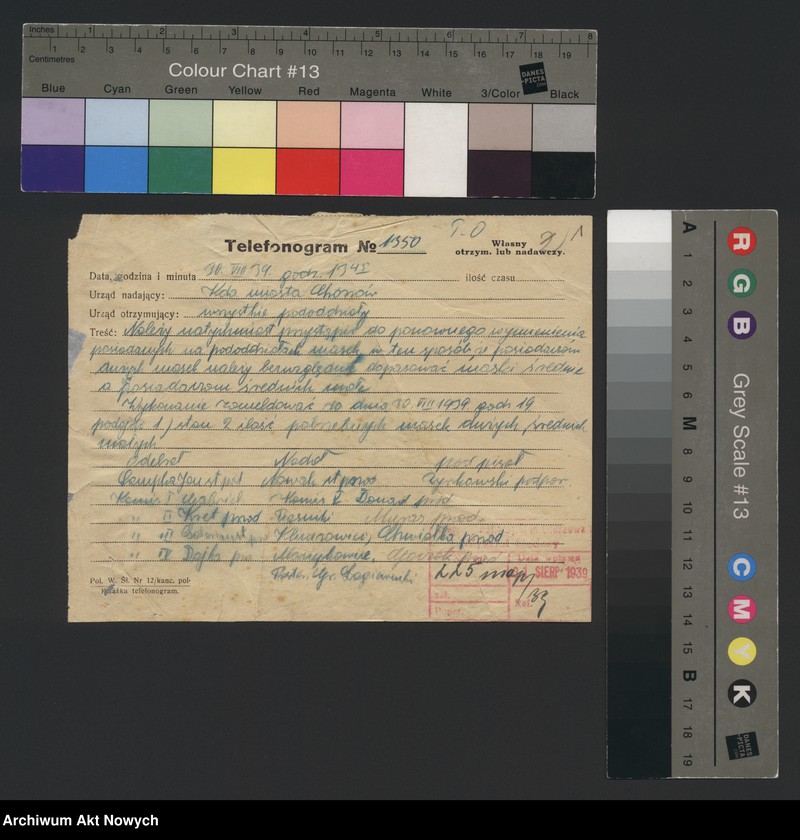 Inches 1 2 3 4 5 6 7 8
1 2 3 4 5 6 7 8 9 10 11 12 13 14 15 16 17 18 19
Centimetres
Colour Chart #13
DANES
-PICTA
.COM
Blue Cyan Green Yellow Red Magenta White 3/Color Black
Telefonogram № 1350
T-O
Własny
otrzym. lub nadawczy.
Data, godzina i minuta 30. VIII 39. godz. 13
ilość czasu
Urząd nadający: Kda miasta Chorzów
Urząd otrzymujący: wszystkie pododdziały
Treść: Należy natychmiast przystąpić do ponownego wymienienia
posiadanych na pododdziałach masek w ten sposób, że posiadaczom
dużych masek należy bezwzględnie dopasować maski średnie
a posiadaczom średnich małe.
Wykonanie zameldować do dnia 30. VIII 1939 godz 19
podając 1/ stan 2 ilość potrzebnych masek dużych, średnich
małych
Odebrał Nadał podpisał
Jan st post Nowak st przod podpor.
Komis I Komis V Donad przod
" II Kret przod
" III Chwiałka przod
" IV Dajka
Pol. W. Śl. Nr 12/kanc. pol-
książka telefonogram.
Data
SIERP 1939
225 map
zał.
Podpis
Ref.
A 1 2 3 4 5 6 M 8 9 10 11 12 13 14 15 B 17 18 19
R G B
Grey Scale #13
C M Y K
DANES
-PICTA
.COM
Archiwum Akt Nowych